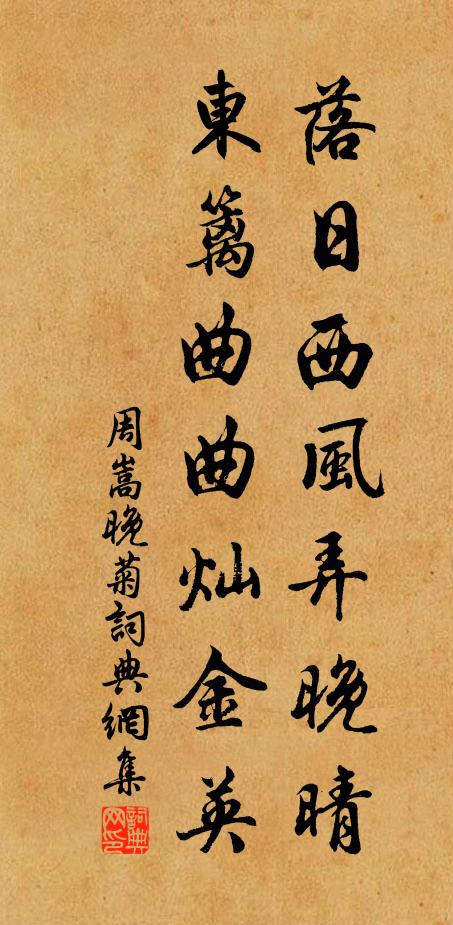 落日西風弄晚晴
東籬曲曲灿金英
周嵩晚菊詞典網集
詞典网印